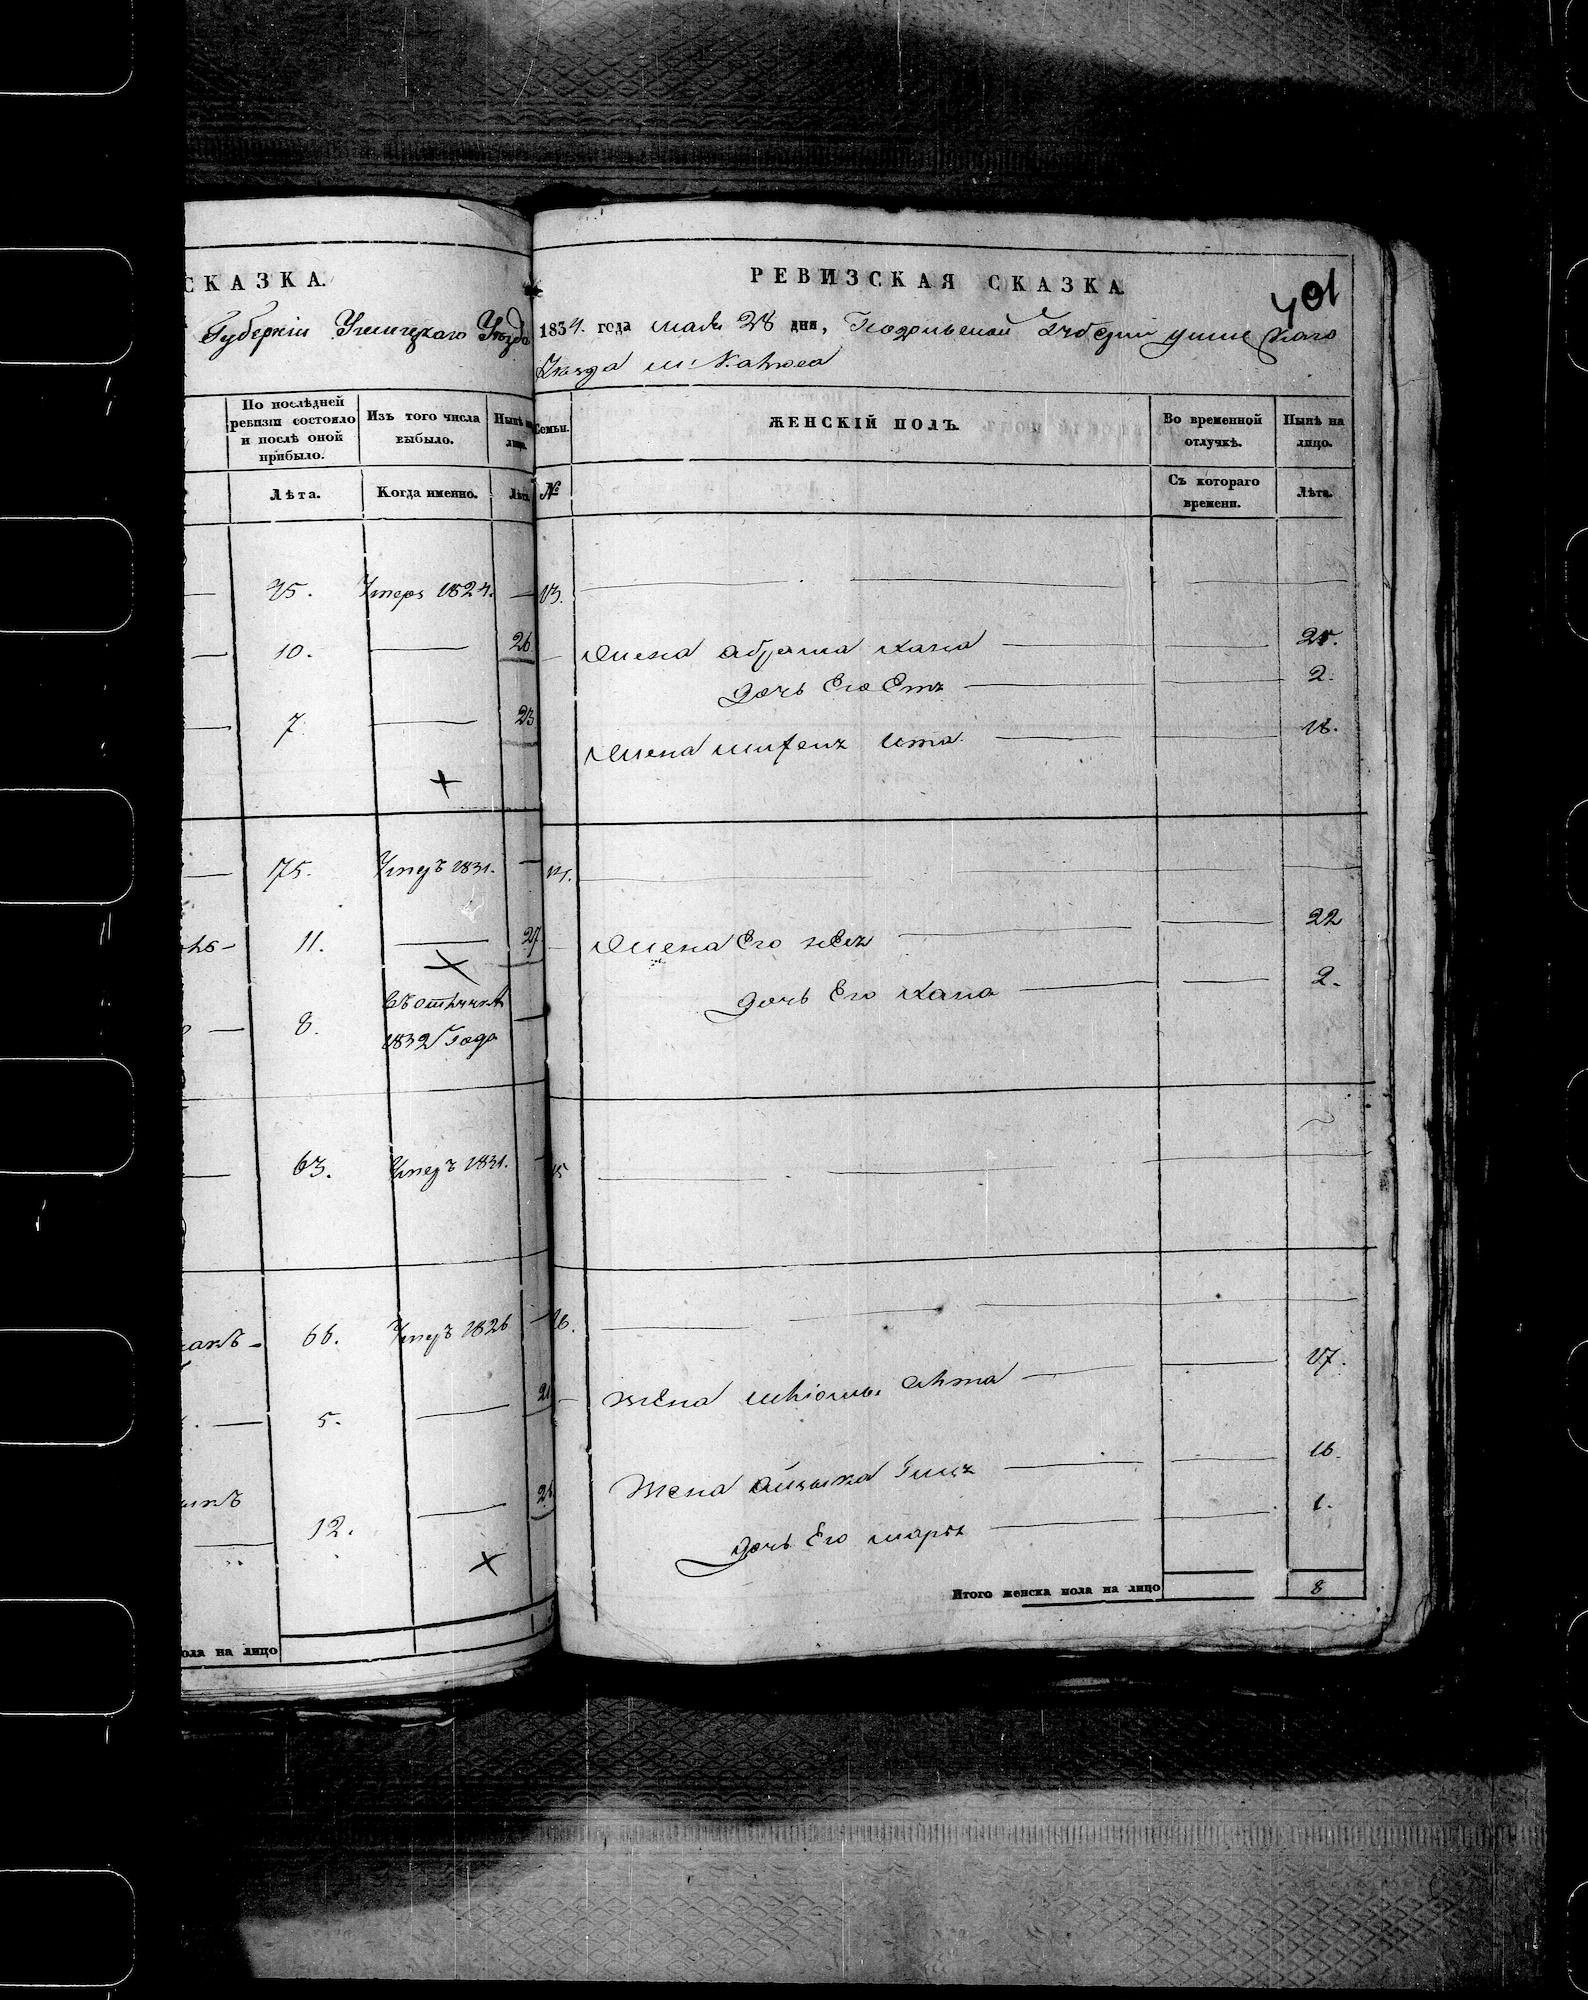 СКАЗКА.
Губерніи Ушицкаго Уѣзда
По послѣдней ревизіи состояло и послѣ оной прибыло.
Изъ того числа выбыло.
Нынѣ на лицо.
Лѣта.
Когда именно.
Лѣта.
Умеръ 1824.
10.
26
7.
23
75.
Умеръ 1831.
11.
27
8.
Въ отлучкѣ
1832 Года
63.
Умеръ 1831.
66.
Умеръ 1826
5.
12.
пола на лицо
401
РЕВИЗСКАЯ СКАЗКА
1834. года мая 28 дня, Подольской Губерніи Ушицкаго
Уѣзда м.
Семьи.
ЖЕНСКІЙ ПОЛЪ.
Во временной отлучкѣ.
Нынѣ на лицо.
№
Съ котораго времени.
Лѣта.
13.
Жена Абрама Хана 25.
Дочь Его 2.
Жена 18.
14.
Жена Его 22
Дочь Его Хана 2.
15
16.
Жена 17.
Жена 16.
Дочь Его 1.
Итого женска пола на лицо 8